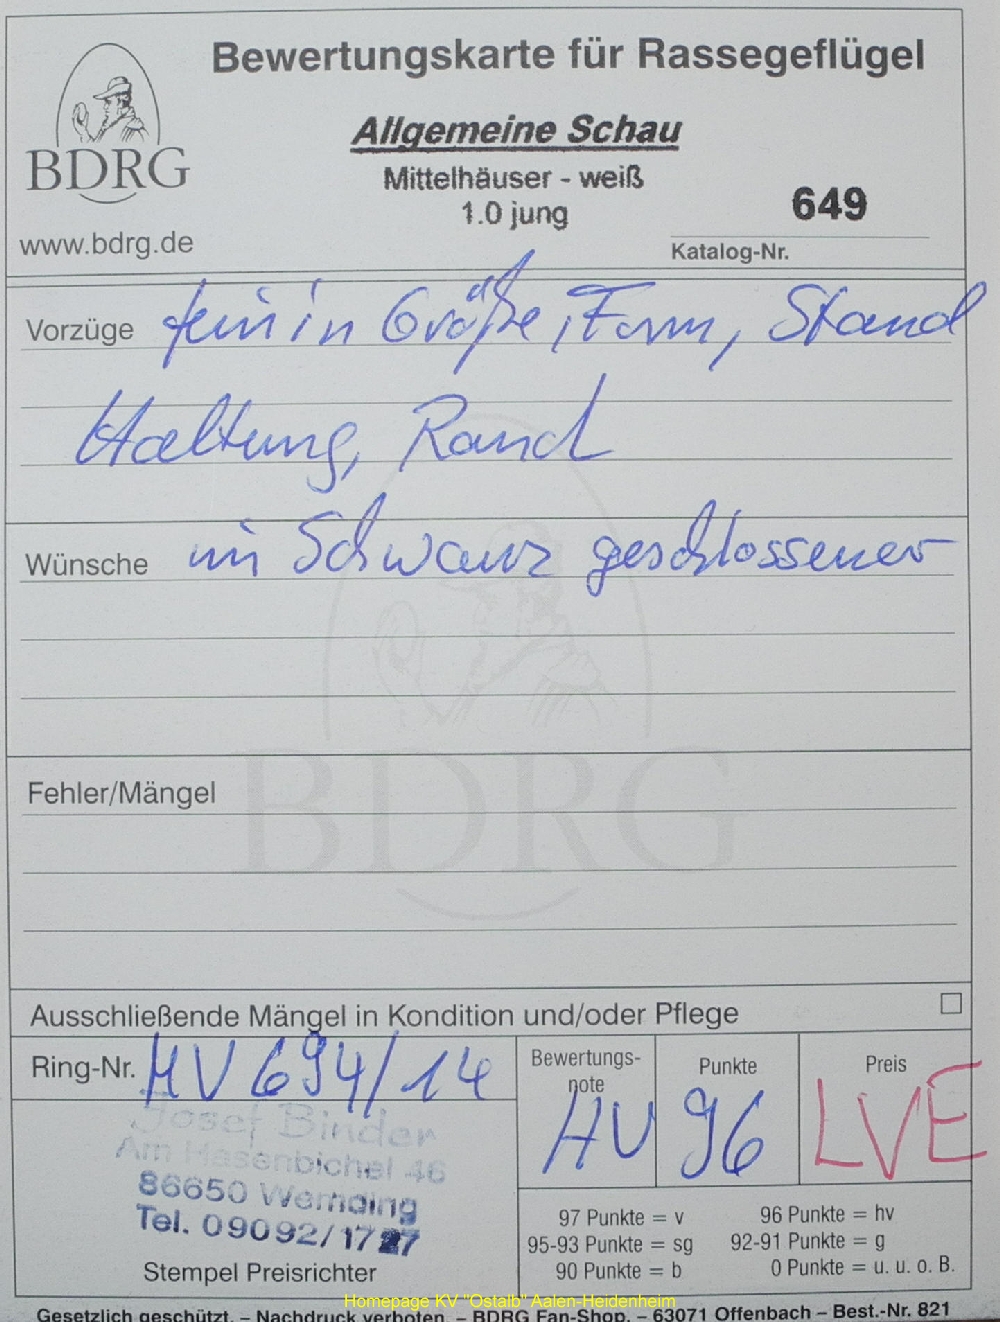 Bewertungskarte für Rassegeflügel
BDRG
www.bdrg.de
Allgemeine Schau
Mittelhäuser - weiß
1.0 jung
649
Katalog-Nr.
Vorzüge fein in Größe, Form, Stand
Haltung, Rand
Wünsche im Schwanz geschlossener
BDRG
Fehler/Mängel
Ausschließende Mängel in Kondition und/oder Pflege
Ring-Nr. HV 694/14
Bewertungs-
note
HV
Punkte
96
Preis
LVE
Josef Binder
Am Hasenbichel 46
86650 Wemding
Tel. 09092/1727
Stempel Preisrichter
97 Punkte = v 96 Punkte = hv
95-93 Punkte = sg 92-91 Punkte = g
90 Punkte = b 0 Punkte = u. u. o. B.
Homepage KV "Ostalb" Aalen-Heidenheim
Gesetzlich geschützt. – Nachdruck verboten. – BDRG Fan-Shop. – 63071 Offenbach – Best.-Nr. 821